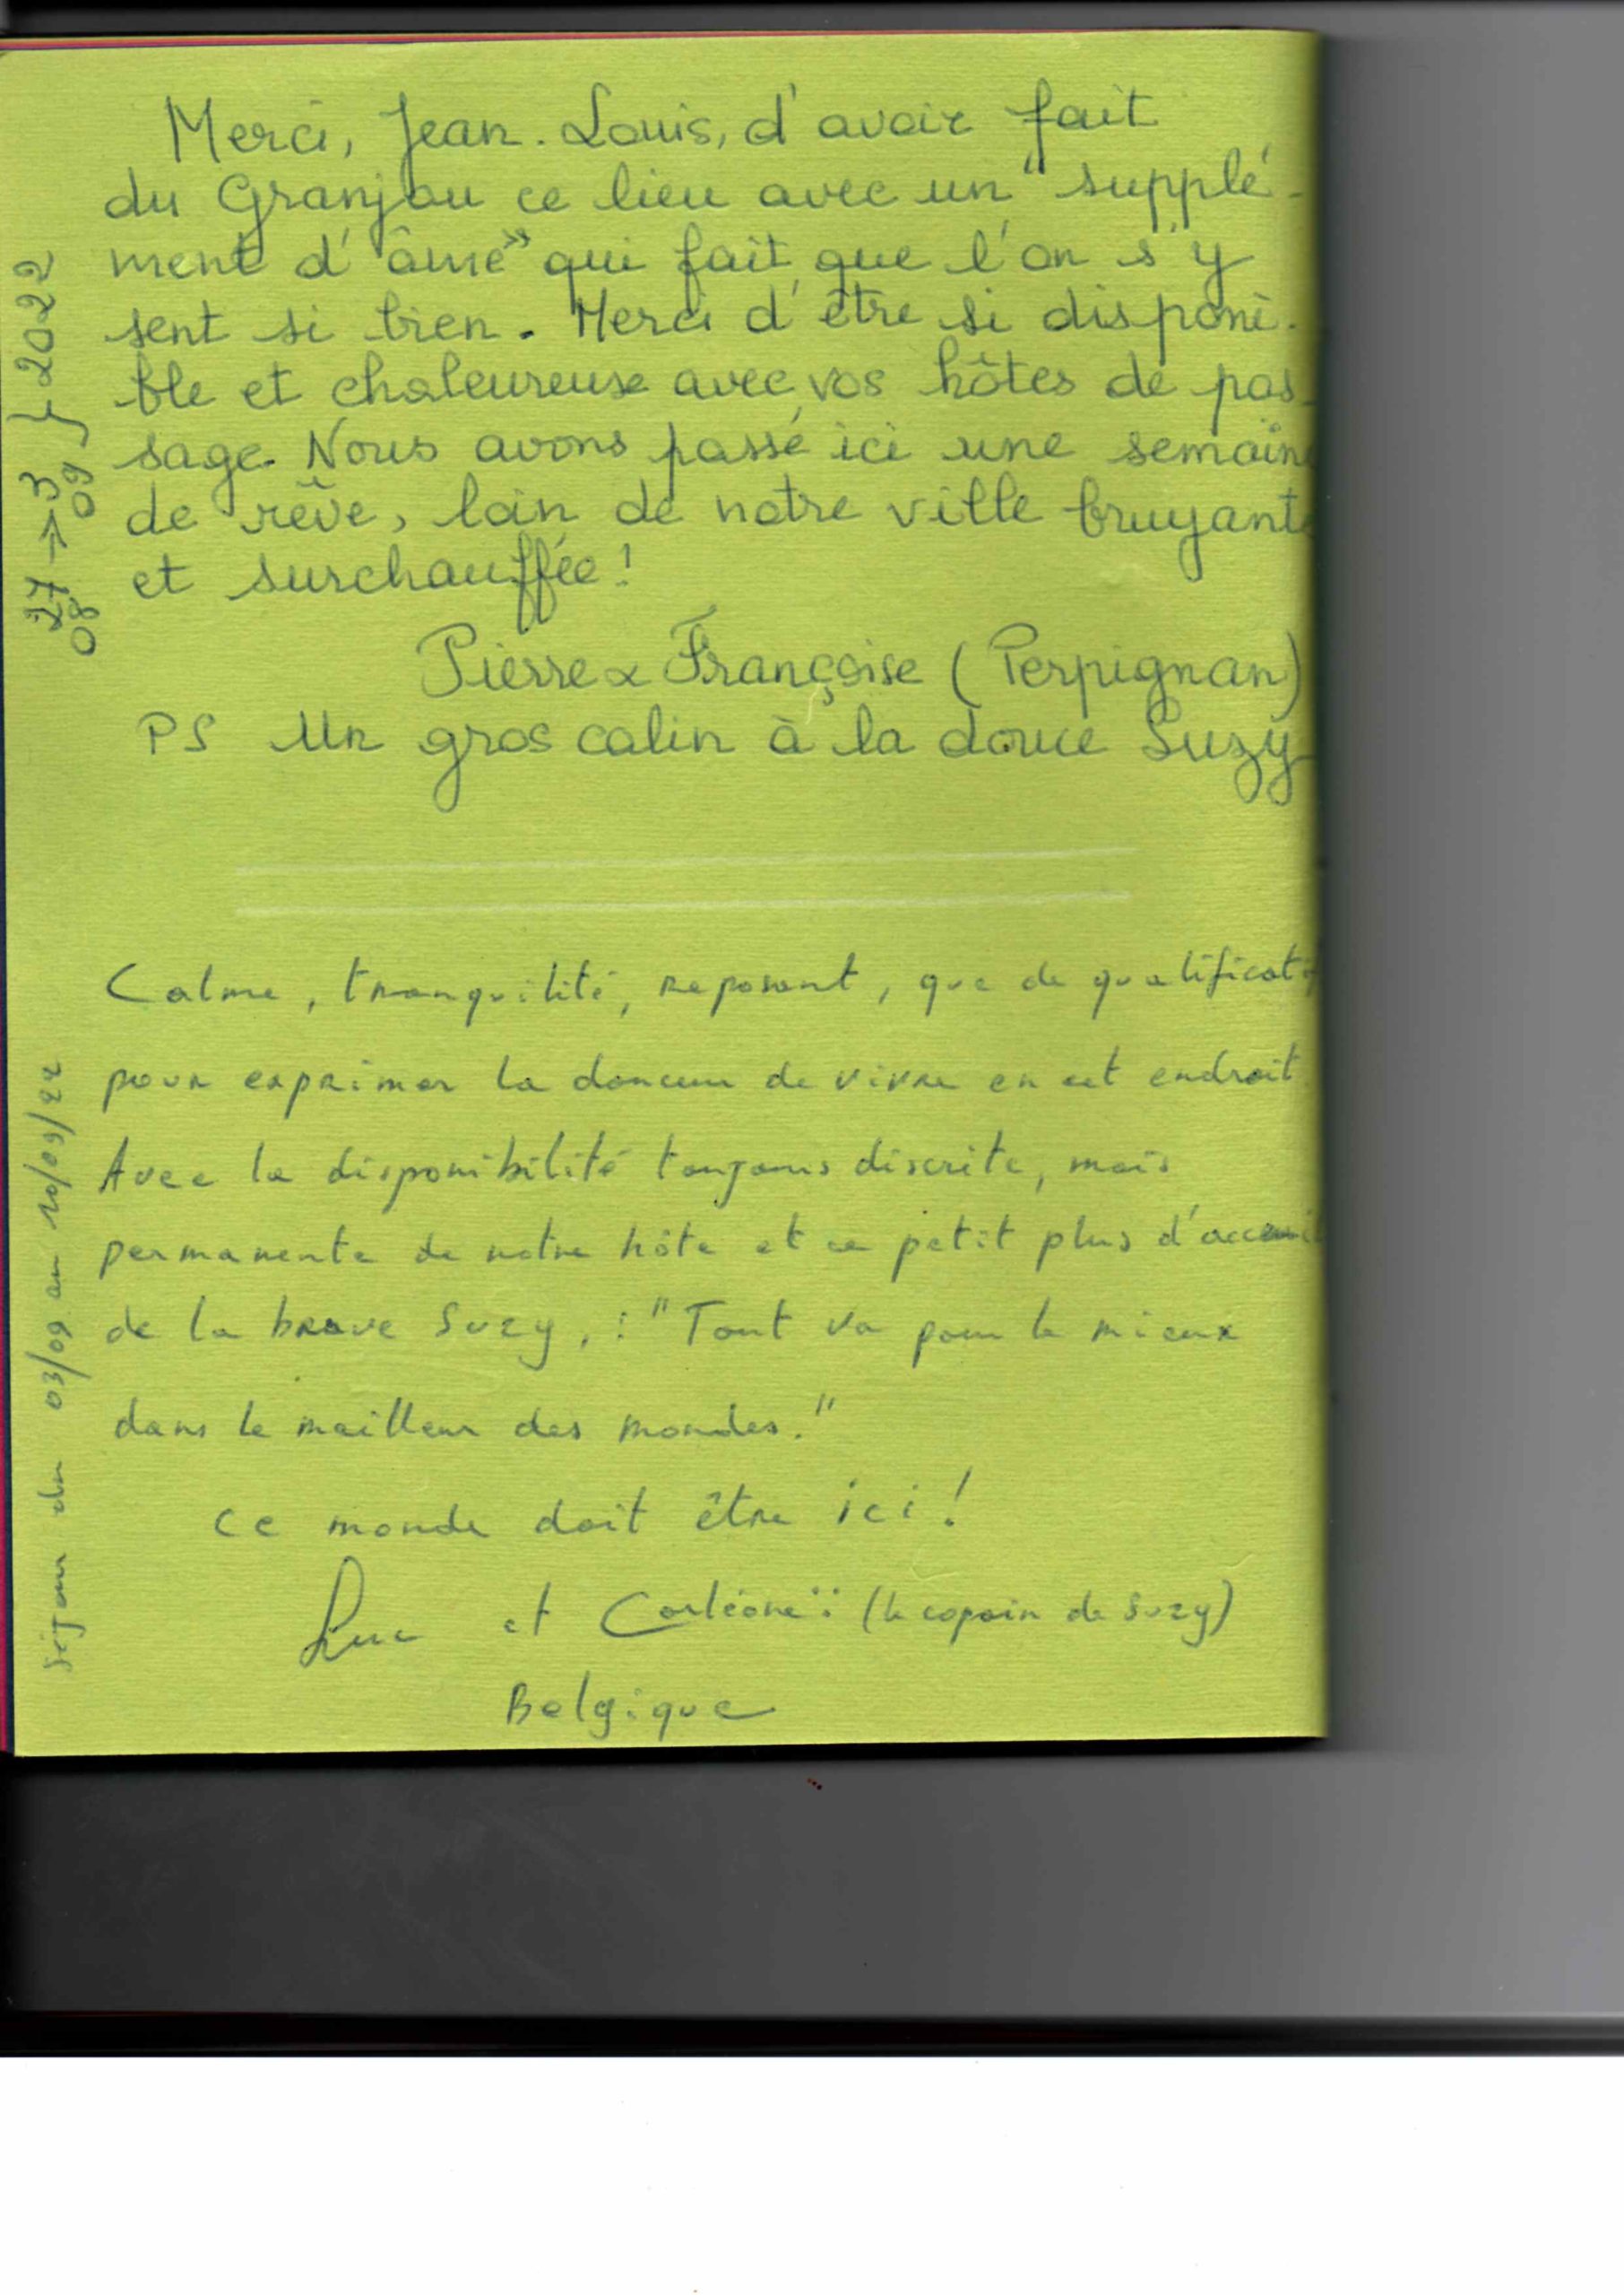 Merci, Jean-Louis, d'avoir fait
du Granjou ce lieu avec un "supplé-
ment d'âme" qui fait que l'on s'y
sent si bien. Merci d'être si disponi-
ble et chaleureuse avec vos hôtes de pas-
sage. Nous avons passé ici une semaine
de rêve, loin de notre ville bruyante
et surchauffée !
Pierre & Françoise (Perpignan)
PS Un gros calin à la douce Suzy
27/08 → 3/09 } 2022
Calme, tranquilité, reposant, que de qualificatif
pour exprimer la douceur de vivre en cet endroit.
Avec la disponibilité toujours discrite, mais
permanente de notre hôte et ce petit plus d'accueil
de la brave Suzy, : "Tout va pour le mieux
dans le meilleur des mondes."
Ce monde doit être ici !
Luc et Corléone (le copain de Suzy)
Belgique
séjour du 03/09 au 10/09/22